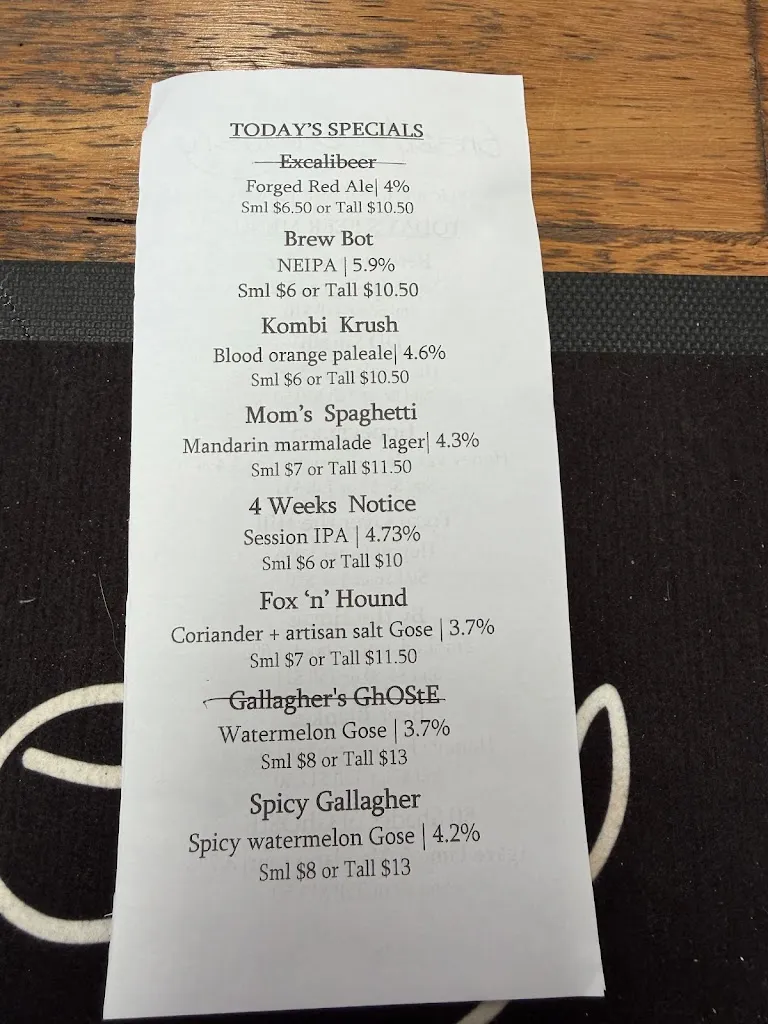 TODAY'S SPECIALS
Excalibeer
Forged Red Ale| 4%
Sml $6.50 or Tall $10.50
Brew Bot
NEIPA | 5.9%
Sml $6 or Tall $10.50
Kombi Krush
Blood orange paleale| 4.6%
Sml $6 or Tall $10.50
Mom's Spaghetti
Mandarin marmalade lager| 4.3%
Sml $7 or Tall $11.50
4 Weeks Notice
Session IPA | 4.73%
Sml $6 or Tall $10
Fox 'n' Hound
Coriander + artisan salt Gose | 3.7%
Sml $7 or Tall $11.50
Gallagher's GhOStE
Watermelon Gose | 3.7%
Sml $8 or Tall $13
Spicy Gallagher
Spicy watermelon Gose | 4.2%
Sml $8 or Tall $13